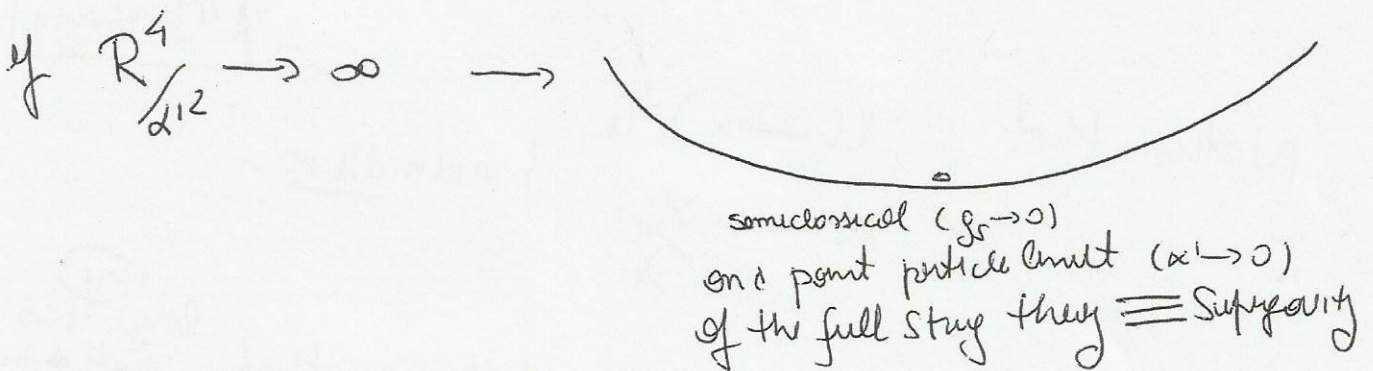 if R⁴/α'² → ∞ →
semiclassical (gs → 0)
and point particle limit (α' → 0)
of the full string theory ≡ Supergravity